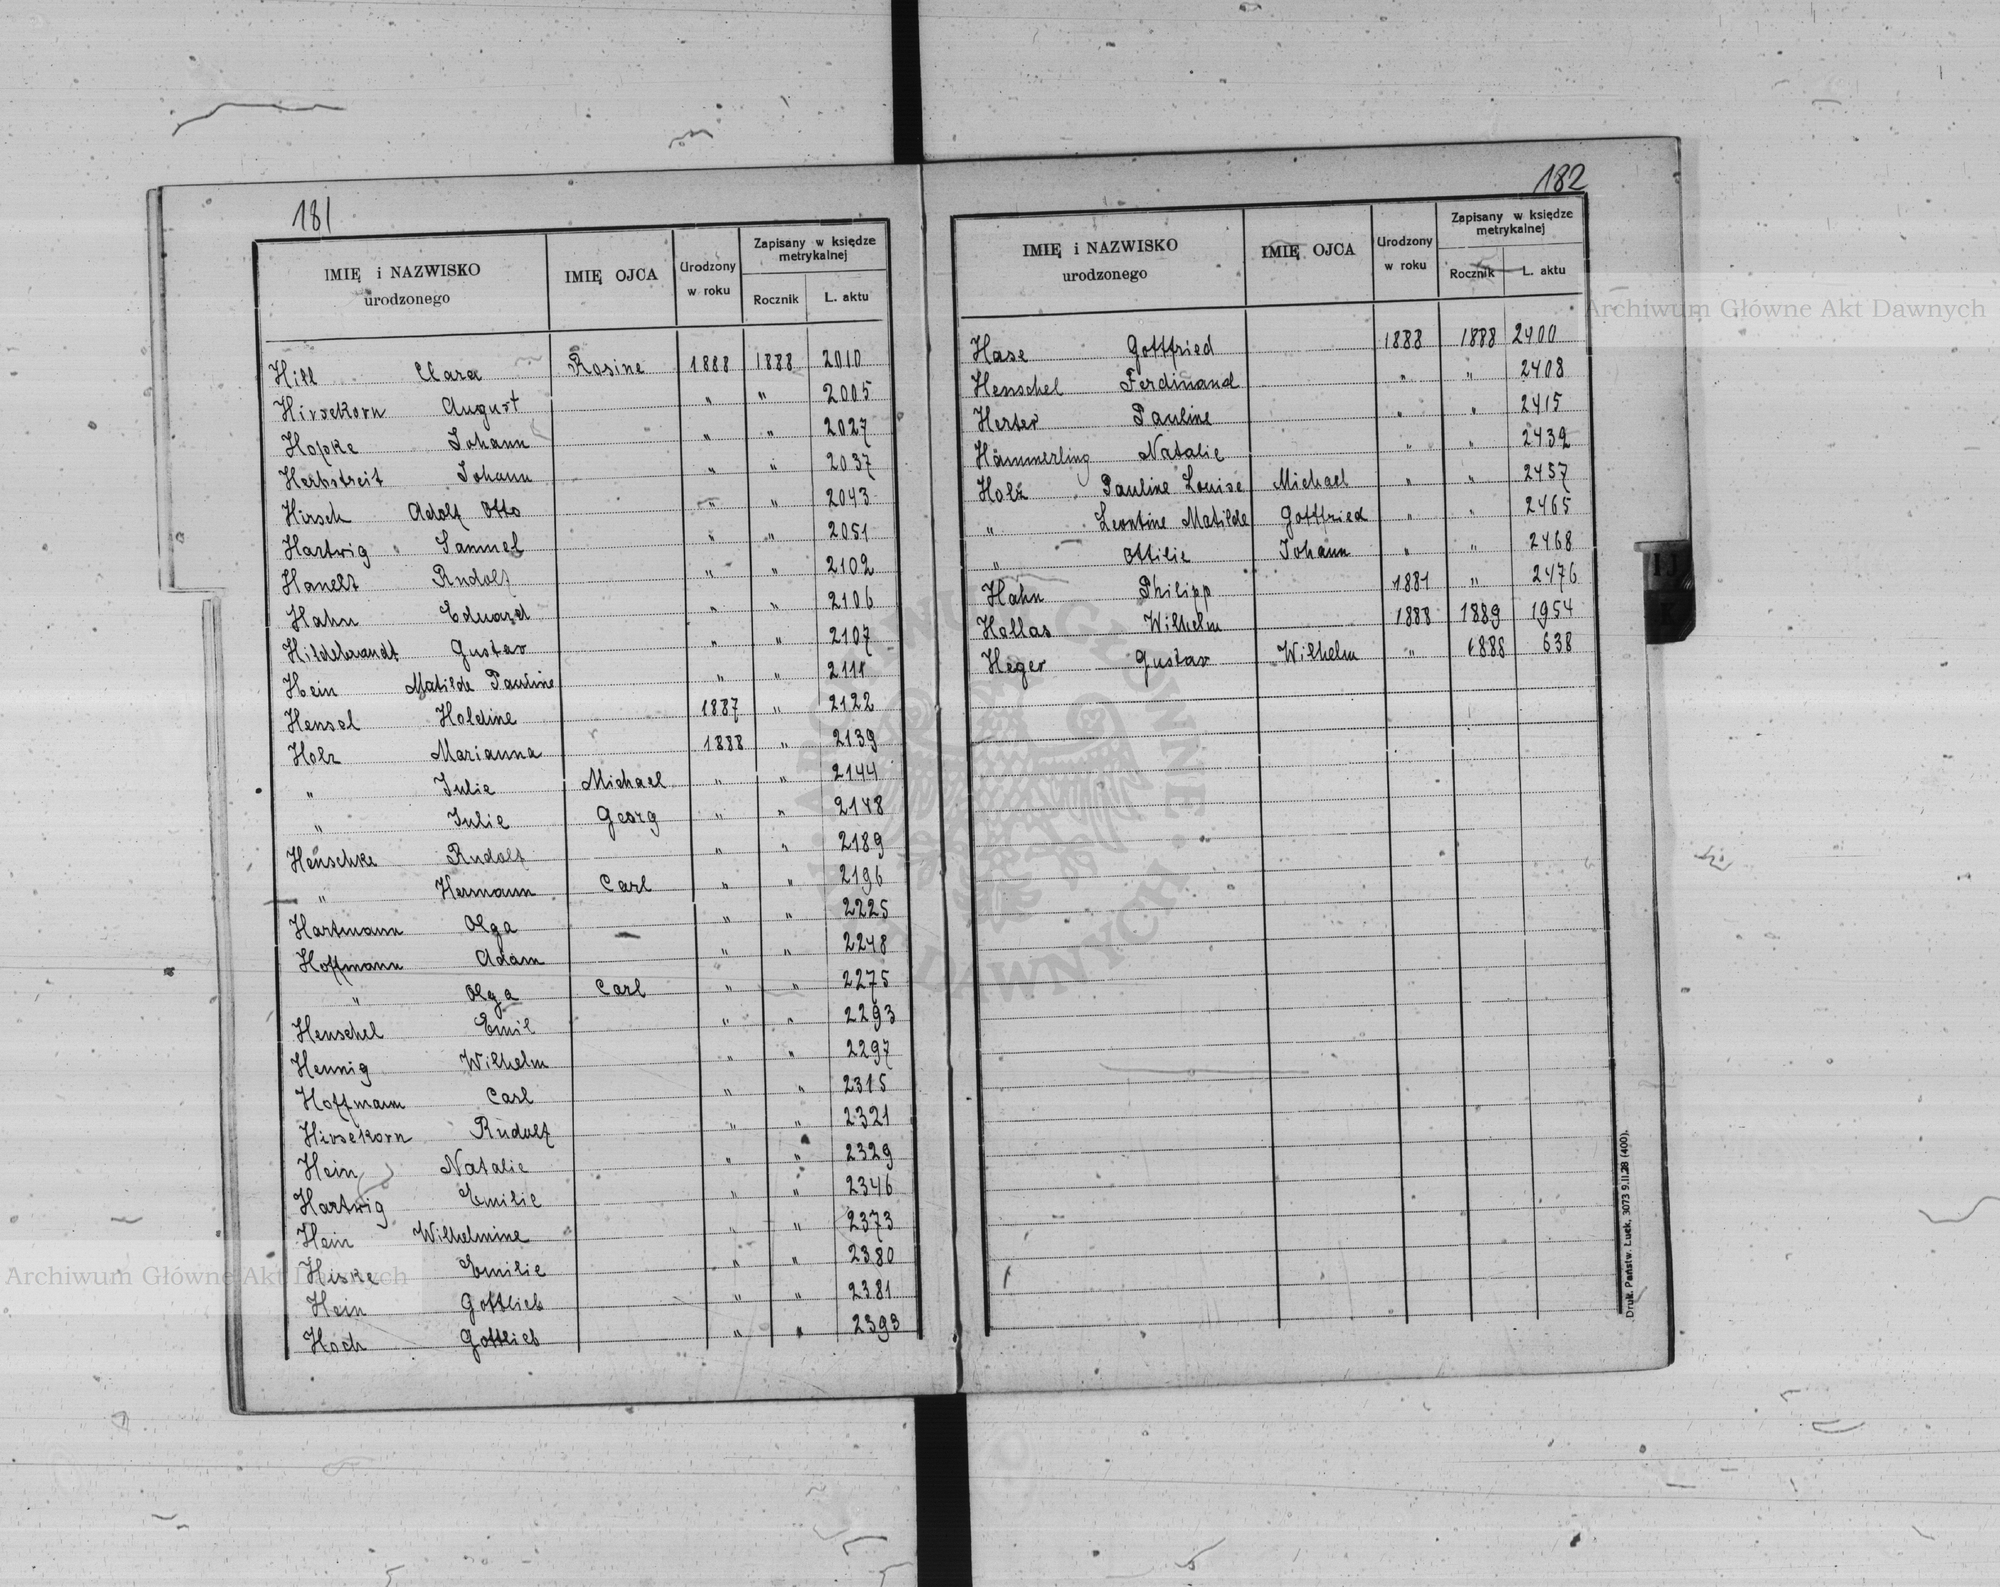 181
IMIĘ i NAZWISKO urodzonego IMIĘ OJCA Urodzony w roku Zapisany w księdze metrykalnej Rocznik L. aktu
Hill Clara Rosine 1888 1888 2010
Hirsekorn August " " 2005
Hopke Johann " " 2027
Herbstreit Johann " " 2037
Hirsch Adolf Otto " " 2043
Hartwig Samuel " " 2051
Hanelt Rudolf " " 2102
Hahn Eduard " " 2106
Hildebrandt Gustav " " 2107
Hein Matilde Pauline " " 2111
Hensel Holdine 1887 " 2122
Holz Marianna 1888 " 2139
" Julie Michael " " 2144
" Julie Georg " " 2148
Henschke Rudolf " " 2189
" Hermann Carl " " 2196
Hartmann Olga " " 2225
Hoffmann Adam " " 2248
" Olga Carl " " 2275
Henschel Emil " " 2293
Hennig Wilhelm " " 2297
Hoffmann Carl " " 2315
Hirsekorn Rudolf " " 2321
Hein Natalie " " 2329
Hartwig Emilie " " 2346
Hein Wilhelmine " " 2373
Hiske Emilie " " 2380
Hein Gottlieb " " 2381
Hoch Gottlieb " " 2393
182
IMIĘ i NAZWISKO urodzonego IMIĘ OJCA Urodzony w roku Zapisany w księdze metrykalnej Rocznik L. aktu
Hase Gottfried 1888 1888 2400
Henschel Ferdinand " " 2408
Herter Pauline " " 2415
Hämmerling Natalie " " 2439
Holz Pauline Louise Michael " " 2457
" Leontine Matilde Gottfried " " 2465
" Ottilie Johann " " 2468
Hahn Philipp 1881 " 2476
Hollas Wilhelm 1888 1889 1954
Heger Gustav Wilhelm " 1888 638
Druk. Państw. Łuck, 3073 9.II.28 (400).
I J
K
Archiwum Główne Akt Dawnych
Archiwum Główne Akt Dawnych
ARCHIWUM GŁÓWNE AKT DAWNYCH